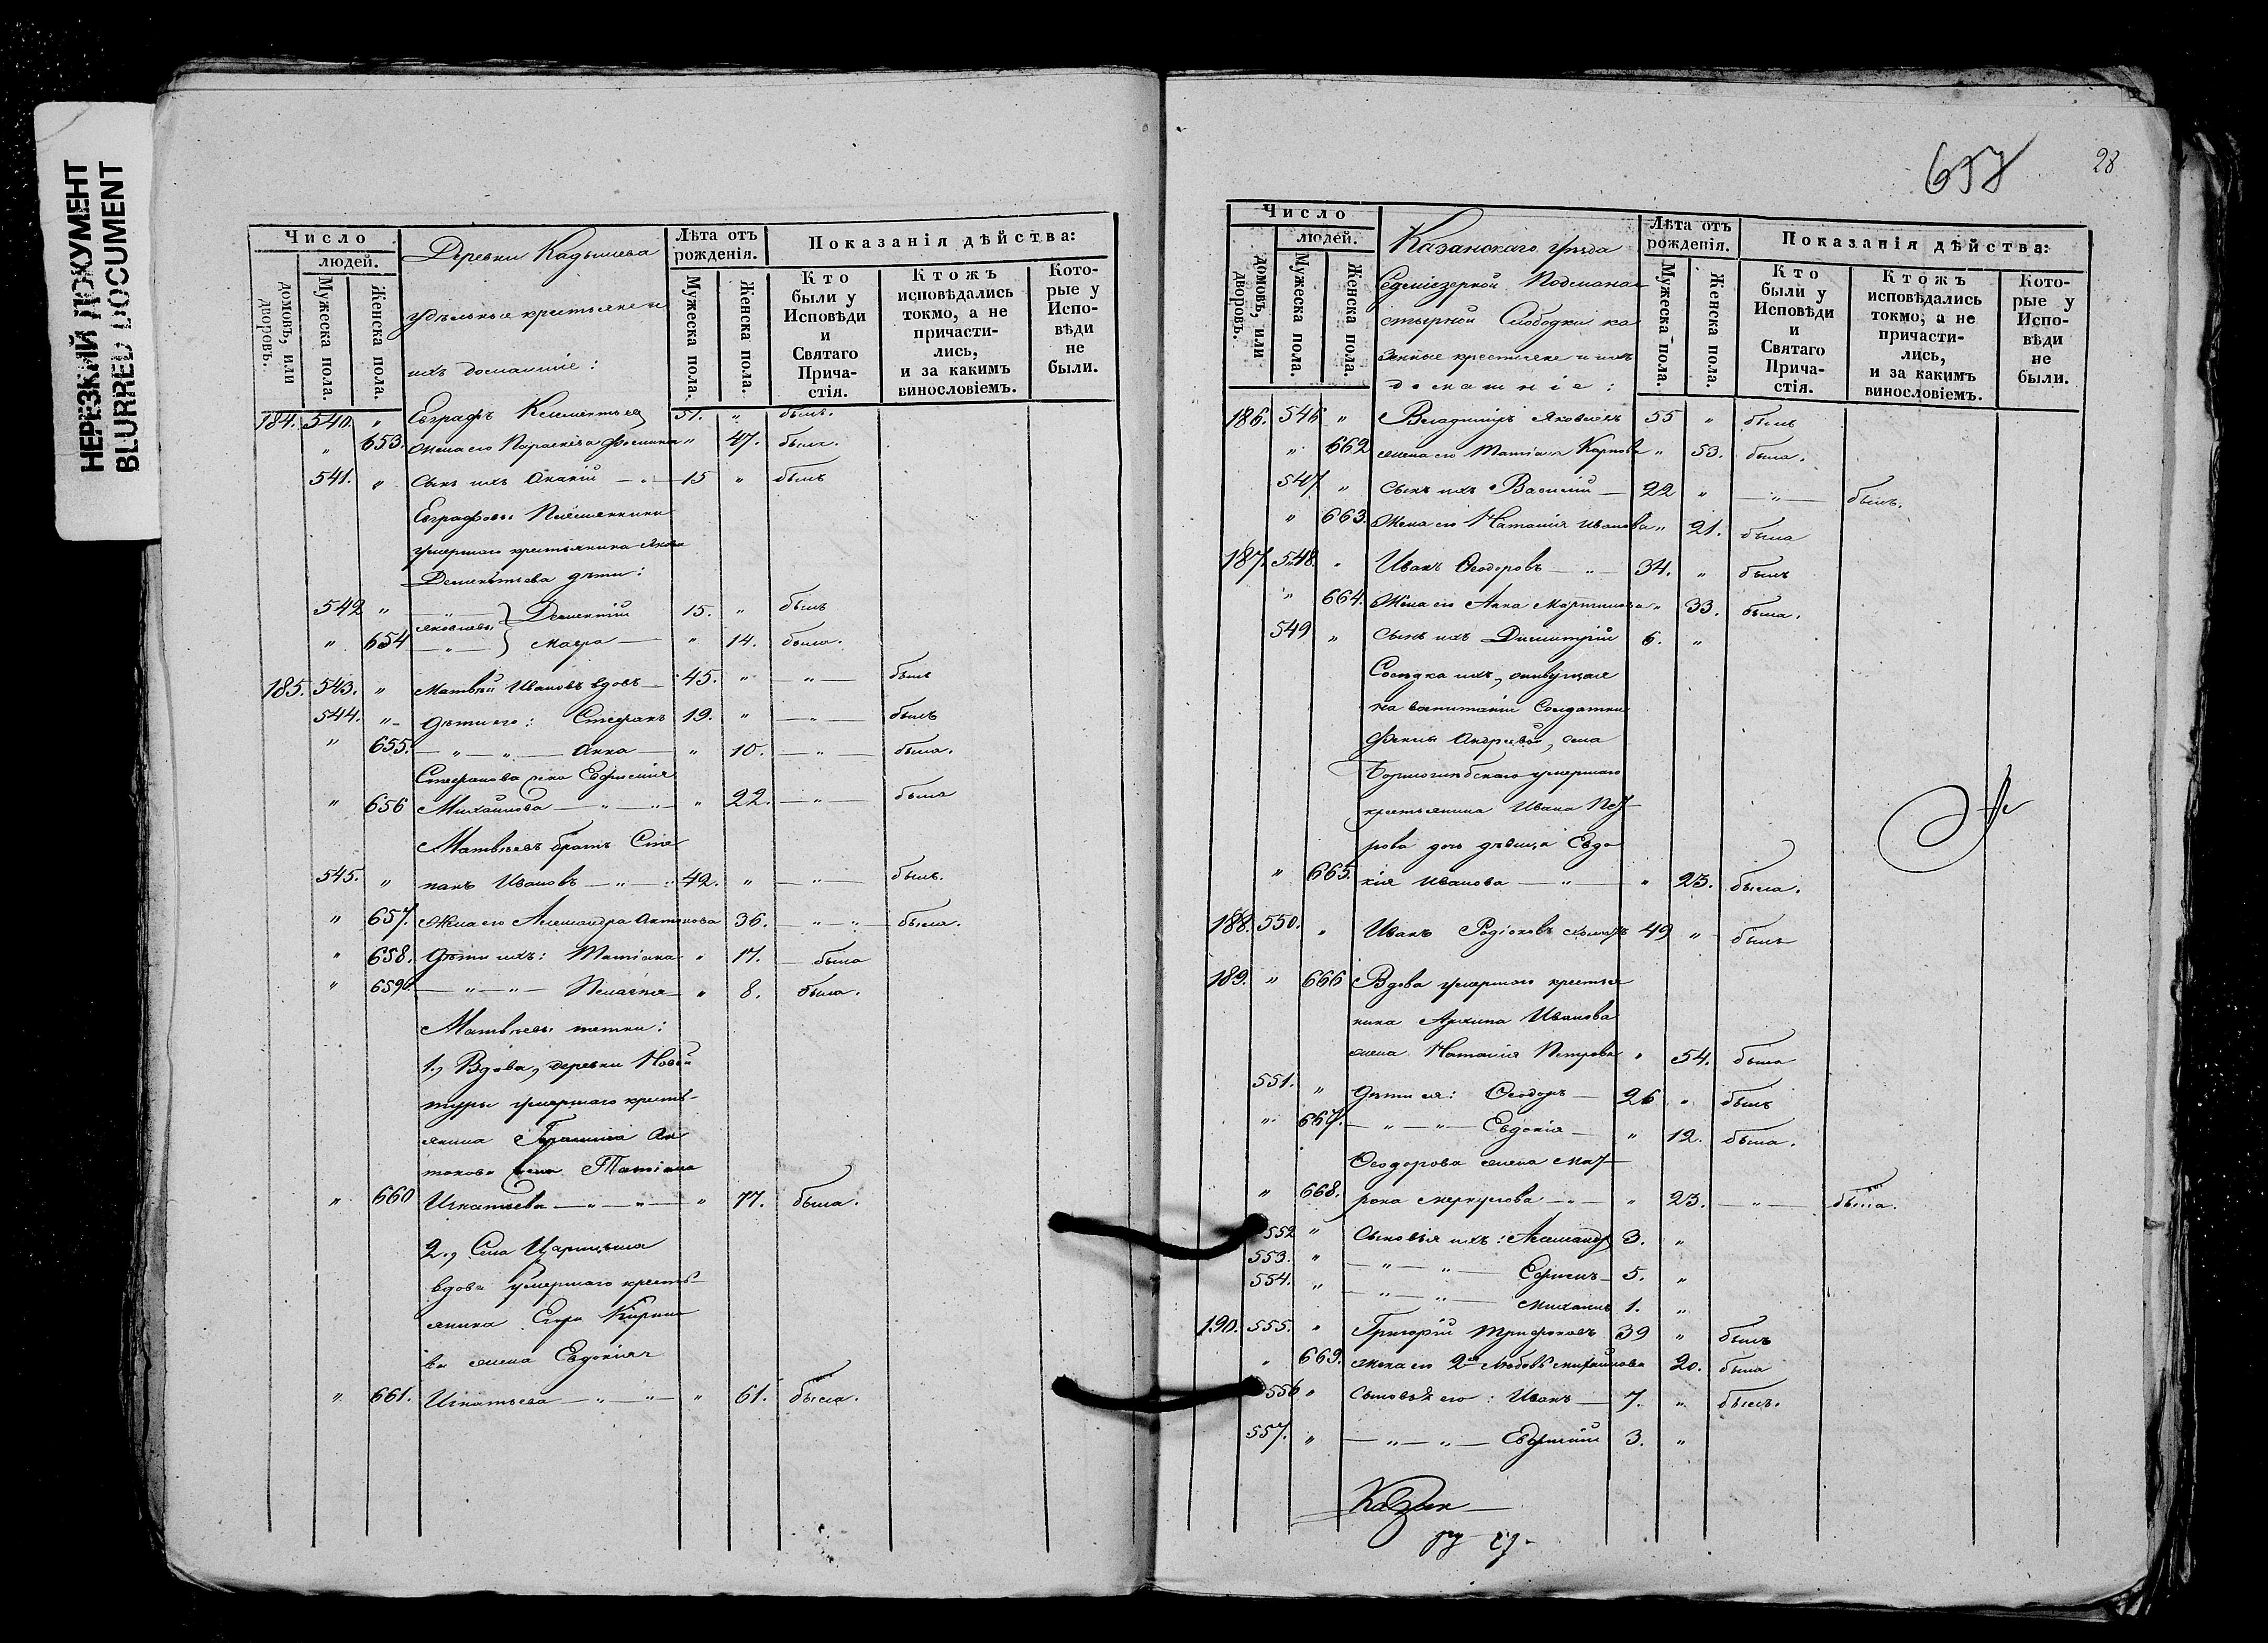 НЕРЕЗКИЙ ДОКУМЕНТ
BLURRED DOCUMENT
Число
людей.
домовъ, или дворовъ.
Мужеска пола.
Женска пола.
Деревни Кадышева
удѣльные крестьяне и
ихъ домашніе:
Лѣта отъ рожденія.
Мужеска пола.
Женска пола.
Показанія дѣйства:
Кто были у Исповѣди и Святаго Причастія.
Ктожъ исповѣдались токмо, а не причастились, и за какимъ винословіемъ.
Которые у Исповѣди не были.
184. 540. " Евграфъ Клементьев 51. " былъ.
" 653. жена его Параскева " 47. была.
541. " Сынъ ихъ Ананій 15 " былъ
Евграфовы Племянники
умершаго крестьянина Якова
Дементьева дѣти:
542 " Яковлевы Дементій 15. " былъ
" 654 Мавра " 14. была.
185. 543. " Матвѣй Ивановъ вдовъ 45. " — " — былъ
544. " Дѣти его: Стефанъ 19. " — " — былъ
" 655. — " — " — Анна " 10. — " — была.
Стефанова жена Евфимія
" 656 Михайлова — " — " " 22. — " — была
Матвѣевъ братъ Сте
545. " панъ Ивановъ — " — 42. " — " — былъ.
" 657. Жена его Александра Антонова 36. — " — " была.
" 658. Дѣти ихъ: Татіана " 17. была
" 659. — " — " — Пелагія " 8. была.
Матвѣевы тетки:
1., Вдова, деревни Новой
туры умершаго кресть-
янина Ан
тонова жена Татіана
" 660 Игнатьева — " — " — " 77. была.
2., Села Царицына
вдова умершаго кресть-
янина Егора Кирил
ва жена Евдокія
" 661. Игнатьева — " — " — " 61. была.
658
28
Число
людей.
домовъ, или дворовъ.
Мужеска пола.
Женска пола.
Казанскаго уѣзда
Седміезерной Подмона
стырной Слободки ка
зенные крестьяне и ихъ
домашніе:
Лѣта отъ рожденія.
Мужеска пола.
Женска пола.
Показанія дѣйства:
Кто были у Исповѣди и Святаго Причастія.
Ктожъ исповѣдались токмо, а не причастились, и за какимъ винословіемъ.
Которые у Исповѣди не были.
186. 546 " Владиміръ Яковлевъ 55 " былъ
" 662 жена его Татіана Карпова " 53. была.
547 " Сынъ ихъ Василій — 22 " — " — былъ.
" 663. Жена его Наталія Иванова " 21. была
187. 548. " Иванъ Ѳеодоровъ — " — 34. " былъ
" 664. Жена его Анна Мартинова " 33. была.
549 " Сынъ ихъ Димитрій 6. "
Сосѣдка ихъ, живущая
на воспитаніи Солдатки
Феклы Андреевой, села
умершаго
крестьянина Ивана Пет
рова дочь дѣвица Евдо
" 665. кія Иванова — " — " 23. была.
188. 550. " Иванъ Родіоновъ 49 " былъ
189. " 666 Вдова умершаго крестья
нина Архипа Иванова
жена Наталія Петрова " 54. была
551. " Дѣти ея: Ѳеодоръ — 26 " былъ
" 667. — " — " — Евдокія — " 12. была.
Ѳеодорова жена Мат
" 668. рона Меркулова — " — " 23. — " — была.
552 " Сыновья ихъ: Александръ 3. "
553. " — " — " — Ефимъ 5. "
554. " — " — " — Михаилъ 1. "
190. 555. " Григорій Трифоновъ 39 " былъ
" 669. жена его 2я Любовь Михайлова 20. была
556 " Сыновья его: Иванъ — 7. " былъ.
557. " — " — " — Евѳимій 3. "